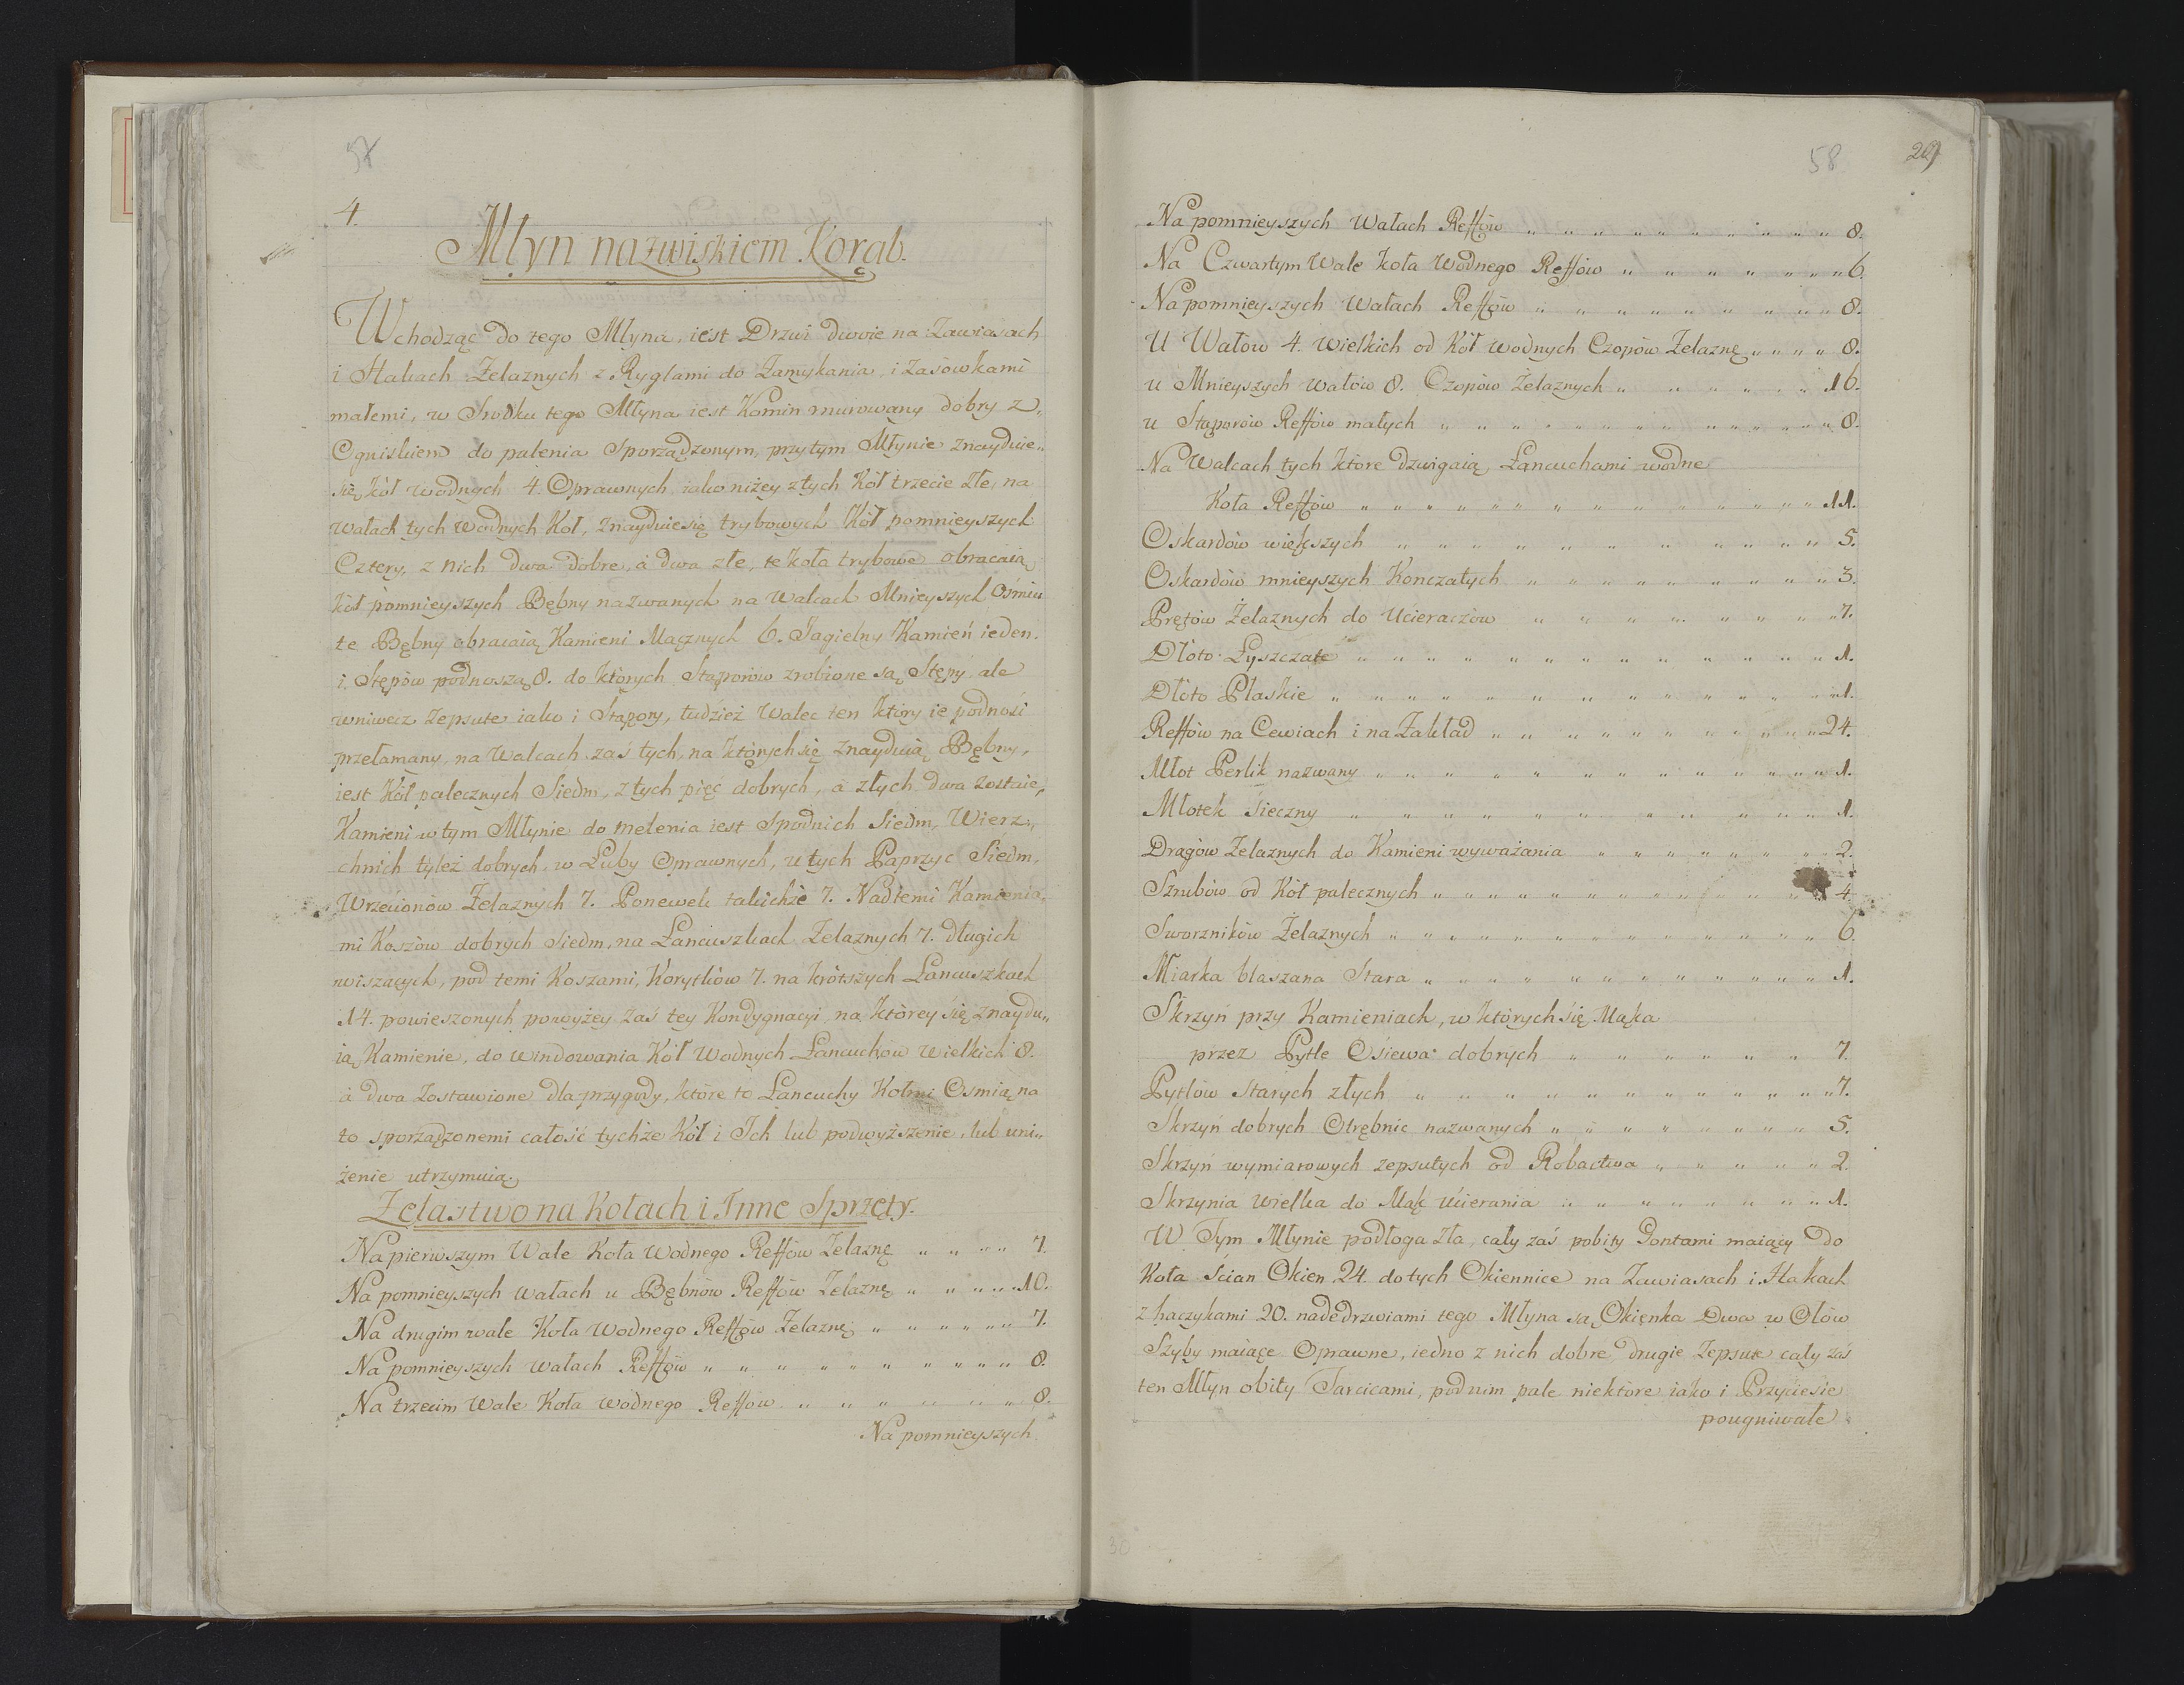 57
4.
Młyn nazwiskiem Korąb.
Wchodząc do tego Młyna, iest Drzwi dwoie na Zawiasach
i Hakach Żelaznych z Ryglami do Zamykania, i Zasówkami
małemi, w Srodku tego Młyna iest Komin murowany dobry z„
Ogniskiem do palenia Sporządzonym, przytym Młynie znayduie„
się kół wodnych 4. Oprawnych, iako niżey z tych Kół trzecie złe, na
wałach tych wodnych Kół, znayduie się trybowych Kół pomnieyszych
Cztery, z nich dwa dobre, á dwa złe, te koła trybowe obracaią
kół pomnieyszych Bębny nazwanych na Walcach Mnieyszych Ośmiu
te Bębny obracaią Kamieni Mącznych 6. Jagielny Kamień ieden.
i Stępów podnoszą 8. do których Stąporów zrobione są Stępy, ale
wniwecz Zepsute iako i Stąpory, tudzież Walec ten który ie podnosi
przełamany, na Walcach zaś tych, na których się znayduią Bębny,
iest Kół palecznych Siedm, z tych pięć dobrych, a złych dwa zostaie,
Kamieni w tym Młynie do mełenia iest Spodnich Siedm, Wierz„
chnich tyleż dobrych, w Łuby Oprawnych, u tych Paprzyc Siedm,
Wrzecionów Żelaznych 7. Ponewek takichże 7. Nad temi Kamienia„
mi Koszów dobrych Siedm, na Łancuszkach Żelaznych 7. długich
wiszących, pod temi Koszami, Korytków 7. na krótszych Łancuszkach
14. powieszonych powyżey zaś tey Kondygnacyi na którey się znaydu„
ią Kamienie, do windowania Kół Wodnych Łancuchów Wielkich 8.
á dwa Zostawione dla przygody, które to Łancuchy Kołmi Osmią na
to sporządzonemi całość tychże Kół i Ich lub podwyższenie, lub uni„
żenie utrzymuią.
Żelastwo na Kołach i Inne Sprzęty.
Na pierwszym Wale Koła Wodnego Reffów Żelazne „ „ „ „ 7.
Na pomnieyszych Wałach u Bębnów Reffów Żelazne „ „ „ „ 10.
Na drugim wale Koła Wodnego Reffów Żelazne „ „ „ „ „ „ 7.
Na pomnieyszych wałach Reffów „ „ „ „ „ „ „ „ „ „ 8.
Na trzecim Wale Koła Wodnego Reffów „ „ „ „ „ „ 8.
Na pomnieyszych
58
29
Na pomnieyszych Wałach Reffów „ „ „ „ „ „ „ „ „ „ 8.
Na Czwartym Wale Koła Wodnego Reffów „ „ „ „ „ „ „ 6.
Na pomnieyszych Wałach Reffów „ „ „ „ „ „ „ „ „ „ 8.
U Wałów 4. wielkich od Kół wodnych Czopów Żelazne „ „ „ „ 8.
u Mnieyszych wałów 8. Czopów Żelaznych „ „ „ „ „ „ 16.
u Stąporów Reffów małych „ „ „ „ „ „ „ „ „ „ „ „ 8.
Na Walcach tych które dzwigaią Łancuchami wodne
Koła Reffów „ „ „ „ „ „ „ „ „ „ „ „ „ „ 11.
Oskardów większych „ „ „ „ „ „ „ „ „ „ „ „ 5.
Oskardów mnieyszych Konczatych „ „ „ „ „ „ „ „ „ 3.
Prętów Żelaznych do Ucieraczów „ „ „ „ „ „ „ „ „ 7.
Dłóto Łyszczate „ „ „ „ „ „ „ „ „ „ „ „ „ 1.
Dłóto Płaskie „ „ „ „ „ „ „ „ „ „ „ „ „ 1.
Reffów na Cewiach i na Zakład „ „ „ „ „ „ „ „ „ „ 24.
Młot Perlik nazwany „ „ „ „ „ „ „ „ „ „ „ „ „ 1.
Młotek Sieczny „ „ „ „ „ „ „ „ „ „ „ „ „ 1.
Drągów Żelaznych do Kamieni wyważania „ „ „ „ „ „ „ 2.
Szrubów od Kół palecznych „ „ „ „ „ „ „ „ „ „ „ 4.
Sworzników Żelaznych „ „ „ „ „ „ „ „ „ „ „ „ „ 6.
Miarka blaszana Stara „ „ „ „ „ „ „ „ „ „ „ „ 1.
Skrzyń przy Kamieniach, w których się Mąka
przez Pytle Ósiewa dobrych „ „ „ „ „ „ „ 7.
Pytlów Starych złych „ „ „ „ „ „ „ „ „ „ „ „ „ 7.
Skrzyń dobrych Otrębnic nazwanych „ „ „ „ „ „ „ „ 5.
Skrzyń wymiarowych zepsutych od Robactwa „ „ „ „ „ 2.
Skrzynia Wielka do Mąk Ucierania „ „ „ „ „ „ „ „ 1.
W Tym Młynie podłoga Zła, cały zaś pobity Gontami maiący do
Koła Ścian Okien 24. do tych Okiennice na Zawiasach i Hakach
z haczykami 20. nade drzwiami tego Młyna są Okięnka Dwa w Ołów
Szyby maiące Oprawne, iedno z nich dobre drugie Zepsute cały zaś
ten Młyn obity Tarcicami, pod nim pale niektóre iako i Przyciesie
pougniwałe
30